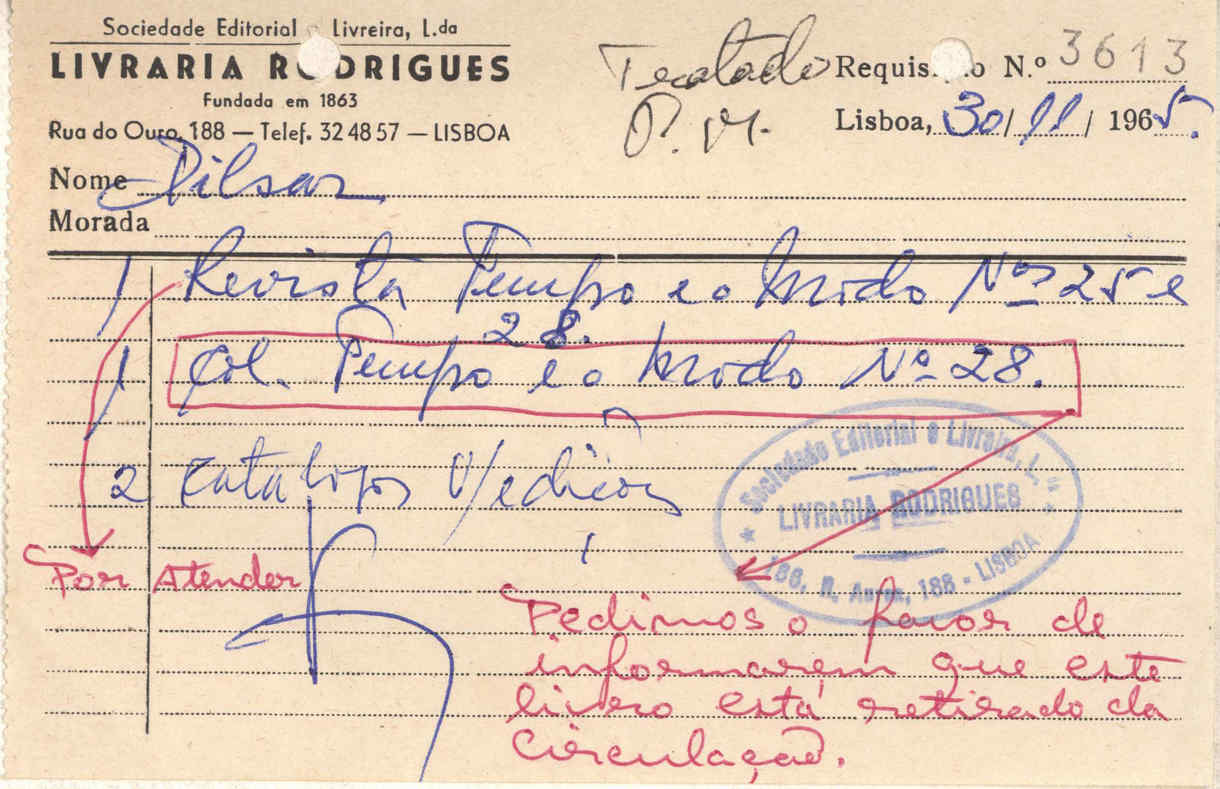 Sociedade Editorial e Livreira, L.da
LIVRARIA RODRIGUES
Fundada em 1863
Rua do Ouro, 188 — Telef. 32 48 57 — LISBOA
Tratado
P. M.
Requisição N.º 3613
Lisboa, 30/11/1965.
Nome
Morada
1 Revista Tempo e o Modo Nos 25 e
28.
1 Col. Tempo e o Modo Nº 28.
2 Catalogos V/edições
Sociedade Editorial e Livreira, L.da
LIVRARIA RODRIGUES
186, R. Aurea, 188 - LISBOA
Por Atender
Pedimos o favor de
informarem que este
livro está retirado da
circulação.